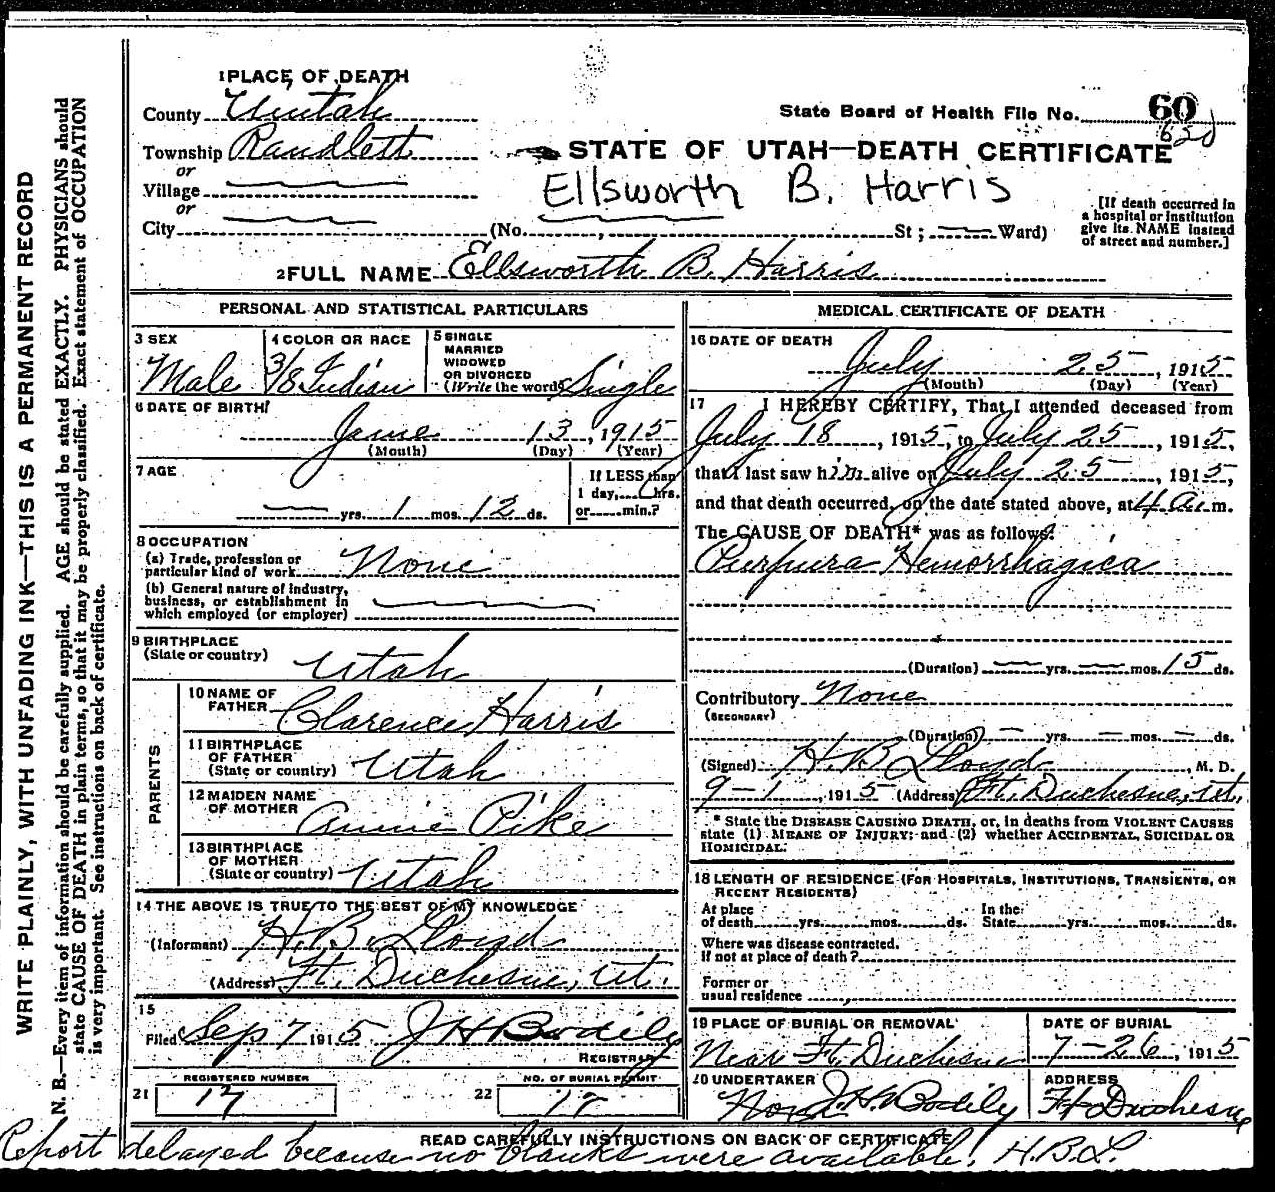 1 PLACE OF DEATH
County Uintah
State Board of Health File No. 60
Township Randlett
or
STATE OF UTAH—DEATH CERTIFICATE
Village
or
Ellsworth B. Harris
City (No. , St ; Ward)
[If death occurred in a hospital or institution give its NAME instead of street and number.]
2 FULL NAME Ellsworth B. Harris
PERSONAL AND STATISTICAL PARTICULARS
3 SEX
Male
4 COLOR OR RACE
3/8 Indian
5 SINGLE
MARRIED
WIDOWED
OR DIVORCED
(Write the word) Single
6 DATE OF BIRTH
June 13, 1915
(Month) (Day) (Year)
7 AGE
yrs. 1 mos. 12 ds.
If LESS than
1 day, hrs.
or min.?
8 OCCUPATION
(a) Trade, profession or
particular kind of work None
(b) General nature of industry,
business, or establishment in
which employed (or employer)
9 BIRTHPLACE
(State or country) Utah
PARENTS
10 NAME OF
FATHER Clarence Harris
11 BIRTHPLACE
OF FATHER
(State or country) Utah
12 MAIDEN NAME
OF MOTHER Annie Pike
13 BIRTHPLACE
OF MOTHER
(State or country) Utah
14 THE ABOVE IS TRUE TO THE BEST OF MY KNOWLEDGE
(Informant) H. B. Lloyd
(Address) Ft. Duchesne, Ut.
15
Filed Sep 7 1915 J H Bodily
REGISTRAR
21 REGISTERED NUMBER 17
22 NO. OF BURIAL PERMIT 17
MEDICAL CERTIFICATE OF DEATH
16 DATE OF DEATH
July 25, 1915
(Month) (Day) (Year)
17 I HEREBY CERTIFY, That I attended deceased from
July 18, 1915, to July 25, 1915,
that I last saw him alive on July 25, 1915,
and that death occurred, on the date stated above, at 4 a.m.
The CAUSE OF DEATH* was as follows:
Purpura Hemorrhagica
(Duration) yrs. mos. 15 ds.
Contributory None
(SECONDARY)
(Duration) yrs. mos. ds.
(Signed) H. B Lloyd, M. D.
9-1, 1915 (Address) Ft. Duchesne, Ut.
* State the DISEASE CAUSING DEATH, or, in deaths from VIOLENT CAUSES
state (1) MEANS OF INJURY; and (2) whether ACCIDENTAL, SUICIDAL OR
HOMICIDAL.
18 LENGTH OF RESIDENCE (FOR HOSPITALS, INSTITUTIONS, TRANSIENTS, OR
RECENT RESIDENTS)
At place In the
of death yrs. mos. ds. State yrs. mos. ds.
Where was disease contracted.
If not at place of death?
Former or
usual residence
19 PLACE OF BURIAL OR REMOVAL
Near Ft. Duchesne
DATE OF BURIAL
7-26, 1915
20 UNDERTAKER
None J. H. Bodily
ADDRESS
Ft Duchesne
READ CAREFULLY INSTRUCTIONS ON BACK OF CERTIFICATE
Report delayed because no blanks were available. H.B.L.
WRITE PLAINLY, WITH UNFADING INK—THIS IS A PERMANENT RECORD
N. B.—Every item of information should be carefully supplied. AGE should be stated EXACTLY. PHYSICIANS should
state CAUSE OF DEATH in plain terms, so that it may be properly classified. Exact statement of OCCUPATION
is very important. See instructions on back of certificate.